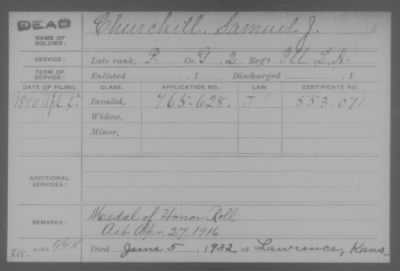 DEAD
NAME OF SOLDIER:
Churchill, Samuel J.
SERVICE:
Late rank, P. Co. G, 2 Reg't Ill. L.A.
TERM OF SERVICE:
Enlisted , 1 Discharged , 1
DATE OF FILING. CLASS. APPLICATION NO. LAW. CERTIFICATE NO.
1890 Invalid, 765-628. J 553.071
Widow,
Minor,
ADDITIONAL SERVICES:
REMARKS:
Medal of Honor Roll
Act Apr. 27, 1916
Died June 5, 1932 at Lawrence, Kans